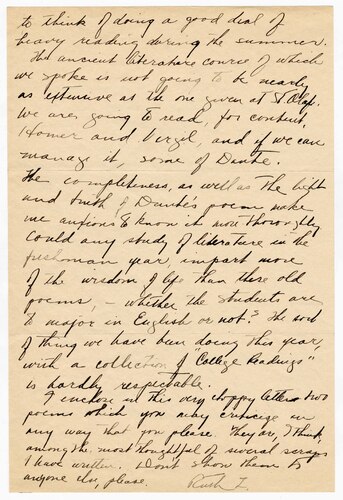 to think of doing a good deal of
heavy reading during the summer.
The ancient literature course of which
we spoke is not going to be nearly
as extensive as the one given at St Olaf.
We are going to read, for content,
Homer and Virgil, and if we can
manage it, some of Dante.
The completeness, as well as the
and truth of Dante's poem make
me anxious to know it more thoroughly
Could any study of literature in the
freshman year, impart more
of the wisdom of life than these old
poems, – whether the students are
to major in English or not? The sort
of thing we have been doing this year,
with a collection of "College Readings"
is hardly respectable.
I enclose in this very choppy letter two
poems which you may criticize in
any way that you please. They are, I think,
among the most thoughtful of several scraps
I have written. Don't show them to
anyone else, please.
Ruth